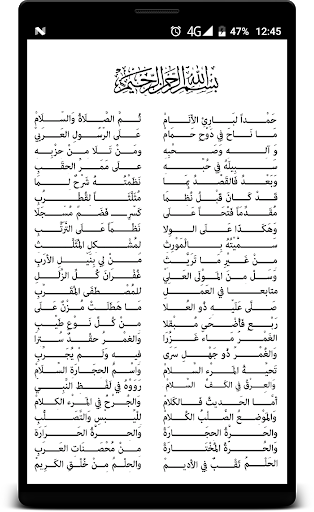 4G 12:45
بسم الله الرحمن الرحيم
حَمْداً لبَارِئِ الأنَامْ ثُمَّ الصَّلاةُ والسَّلامْ
مَا نَاحَ في دَوْحٍ حَمَامْ عَلى الرَّسولِ العرَبي
وآلِهِ وَصَحْبِهِ ومَنْ تَلا مِنْ حزْبِهِ
سَبِيلَهُ في حُبِّهِ على مَمَرِّ الحقَبِ
وَبَعْدُ فالقَصْدُ بِمَا نَظَمْتُهُ شَرْحٌ لِمَا
قَدْ كَانَ قَبْلُ نُظِمَا مُثَلَّثًا لقُطْرُبِ
مُقَدِّمًا فَتْحًا عَلَى كَسْرٍ فَضَمٍّ مُسْجَلا
وَهَكَذَا عَلَى الوِلا نَظْمًا عَلَى التَّرَتُّبِ
سَمَّيْتُهُ بِالْمُورِثِ لمُشْكِلِ المُثَلَّثِ
مِنْ غَيْرِ مَا تَرَيُّثِ مَنْ بي بِنَيْلِ الأرَبِ
وَسَلْ مِنَ المَوْلى العَلِي غُفْرَانَ كُلِّ الزَّلَلِ
متابعا في العَمَلِ للمُصْطَفَى المُقَرَّبِ
صَلَّى عَلَيْهِ ذُو العُلا مَا هَطَلَتْ مُزْنٌ عَلَى
رَبْعٍ فَأَضْحَى مُبْقِلا مِنْ كُلِّ نَوْعٍ طَيِّبِ
والغَمْرُ مَاءٌ غَزُرَا والغِمْرُ حِقْدٌ سُتِرَا
والغُمْرُ ذُو جَهْلٍ سرى فِيهِ وَلَمْ يُجَرِّبِ
تَحِيَّةُ المَرْءِ السَّلامْ وَاسْمُ الحجَارَةِ السِّلامْ
وَالعِرْقُ في الكَفِّ السُّلامْ رَوَوْهُ في لَفْظِ النَّبِي
أمَّا الحَدِيثُ فَالكَلامْ والجُرْحُ في المَرْءِ الكِلامْ
والمَوْضِعُ الصُّلْبُ الكُلامْ لليُبْسِ والتَّصَلُّبِ
والحَرَّةُ الحجَارَةُ والحِرَّةُ الحَرَارَةُ
والحُرَّةُ المُخْتَارَةُ مِنْ مُحْصَنَاتِ العَرَبِ
الحَلْمُ نَقْبٌ في الأديمْ والحِلْمُ مِنْ خُلُقِ الكَرِيمْ